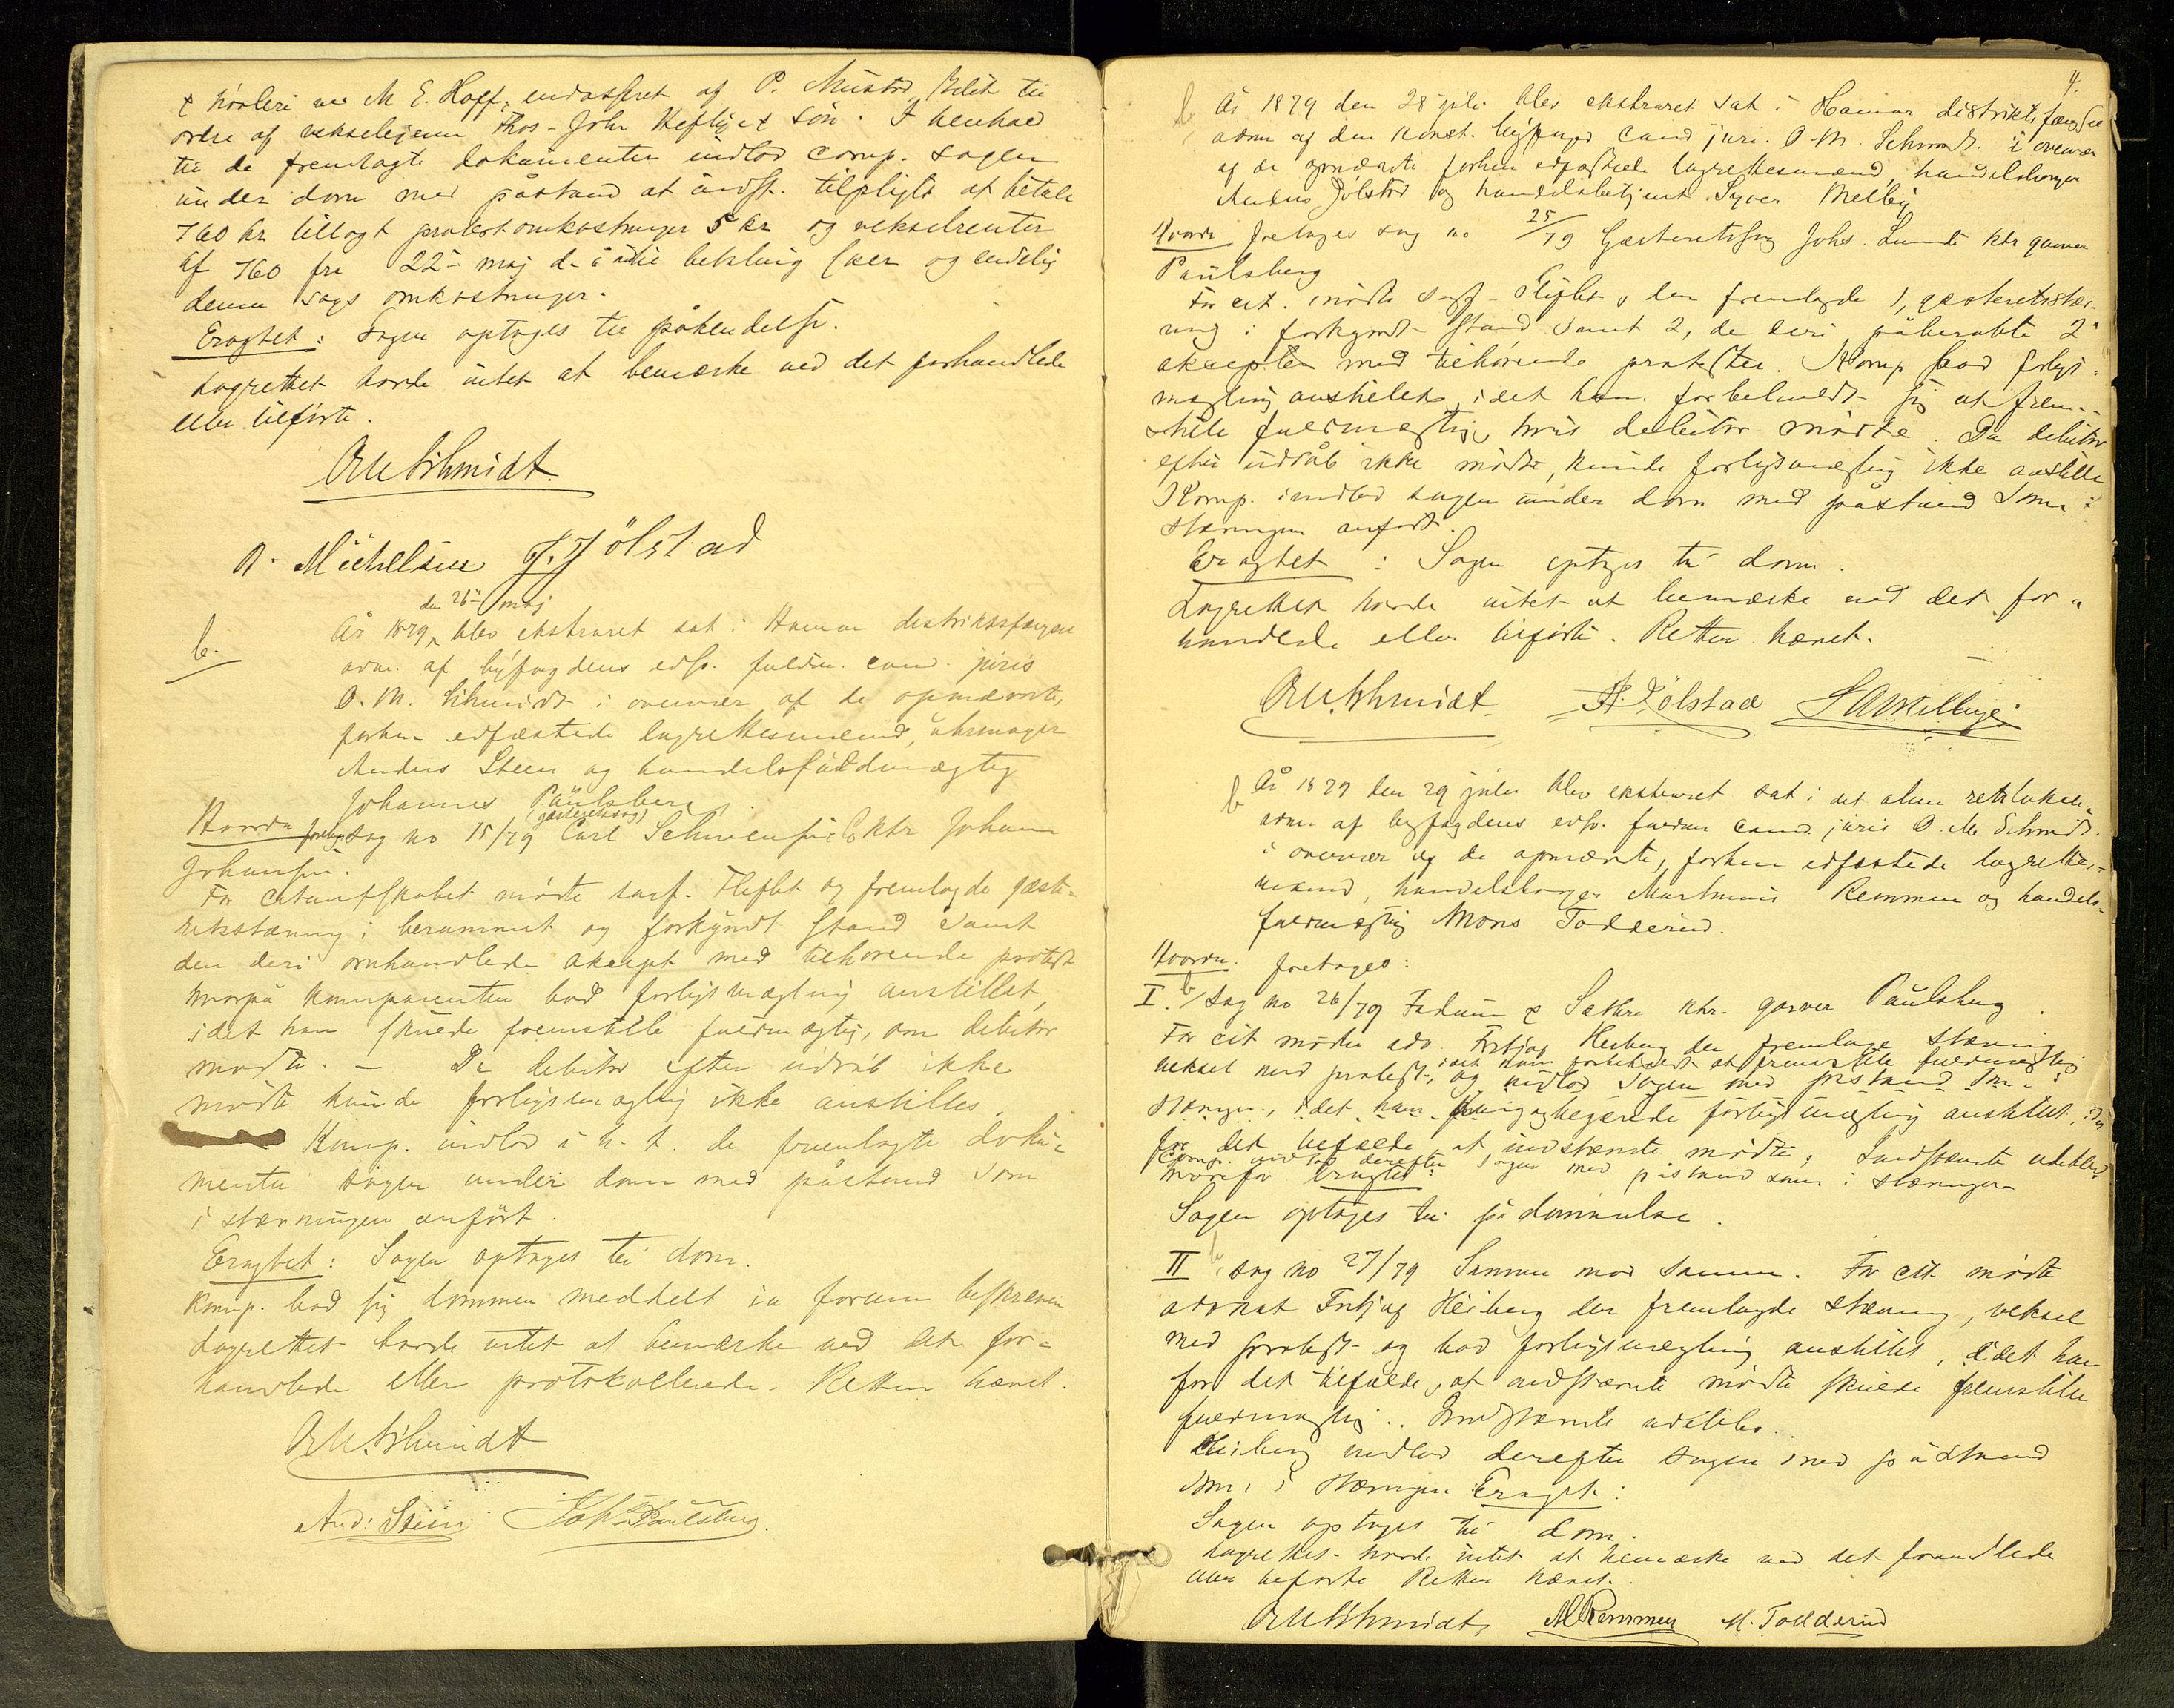 ordre af Thos. Joh. Heftye & Søn. I henhold
til de fremlagte dokumenter indlod comp. sagen
under dom med påstand at indst. tilpligtes at betale
760 kr tillagt protestomkostninger 5 kr og vekselrenter
af 760 fra 22 maj d. å. til betaling sker og endelig
denne sags omkostninger.
Eragtet: Sagen optages til påkendelse.
Lagrettet havde intet at bemærke ved det forhandlede
eller tilførte.
O M Schmidt
A. Michelsen J. Jölstad
den 26 maj
b. År 1879 blev ekstraret sat i Hamar distriktsfængsel
adm. af byfogdens edsv. fuldm. cand. juris
O. M. Schmidt i overvær af de opnævnte,
forhen edfæstede lagrettesmænd, uhrmager
Anders Steen og handelsfuldmægtig
Johannes Paulsberg.
(gæsteretssag)
Hvorda foretoges sag no 15/79 Carl ktr Johan
Johansen.
For citantskabet mødte sagf. Heflet og fremlagde gæste-
retsstævning i berammet og forkyndt stand samt
den deri omhandlede aksept med tilhørende protest
hvorpå komparenten bad forligsmægling anstillet,
idet han skulde fremstille fuldmægtig, om debitor
mødte. – Da debitor efter udråb ikke
mødte kunde forligsmægling ikke anstilles.
Komp. indlod i h. t. de fremlagte doku-
menter sagen under dom med påstand som
i stævningen anført.
Eragtet: Sagen optages til dom.
Komp. bad sig dommen meddelt in forma beskreven
Lagrettet havde intet at bemærke ved det for-
handlede eller protokollerede. Retten hævet.
O M. Schmidt
And: Steen Joh Paulsberg.
4.
b År 1879 den 28 juli blev ekstraret sat i Hamar distriktsfængsel
adm af den konst. byfoged cand juris. O. M. Schmidt. i overvær
af de opnævnte forhen edfæstede lagrettesmænd, handelsborger
Jølstad og handelsbetjent Melby
Hvorda foretoges sag no 25/79 Gæsteretssag Johs. Lunde ktr garver
Paulsberg
For cit. mødte sagf. Heflet, der fremlagde 1, gæsteretsstæv-
ning i forkyndt stand samt 2, de deri påberabte 2
aksepter med tilhørende protester. Komp bad forligs-
mægling anstillet, idet han forbeholdt sig at frem-
stille fuldmægtig, hvis debitor mødte. Da debitor
efter udråb ikke mødte, kunde forligsmægling ikke anstilles
Komp. indlod sagen under dom med påstand som i
stævningen anført.
Eragtet: Sagen optages til dom.
Lagrettet havde intet at bemærke ved det for-
handlede eller tilførte. Retten hævet.
O M. Schmidt A. Jølstad
b År 1879 den 29 juli blev ekstraret sat i det alm. retslokale
adm. af byfogdens edsv. fuldm cand. juris O. M. Schmidt.
i overvær af de opnævnte, forhen edfæstede lagrettes-
mænd, handelsborger Remmen og handels-
fuldmægtig Mons Todderud.
Hvorda foretoges:
I. b sag no 26/79 & Sæthre ktr. garver Paulsberg.
For cit mødte adv. Heiberg der fremlage stævning
idet han forbeholdt at fremstille fuldmægtig
veksel med protest, og indlod sagen med påstand som i
stævningen, idet han begærede forligsmægling anstillet,
for det tilfælde at indstævnte mødte; Indstævnte udeblev
Comp. indlod derefter sagen med påstand som i stævningen
hvorefter Eragtet:
Sagen optages til pådømmelse.
II b sag no 27/79 Samme mod samme. For cit mødte
advokat Heiberg der fremlagde stævning, veksel
med protest og bad forligsmægling anstillet, idet han
for det tilfælde, at indstævnte mødte skulde fremstille
fuldmægtig. Indstævnte udeblev.
Heiberg indlod derefter sagen med påstand
som i stævningen Eragtet:
Sagen optages til dom.
Lagrettet havde intet at bemærke ved det
eller tilførte Retten hævet.
O M Schmidt M Remmen M. Todderud